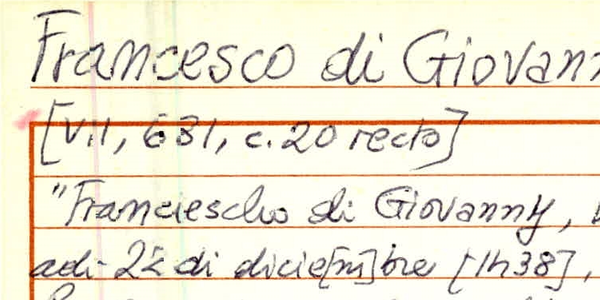 Francesco di Giovann
[VII, 631, c. 20 recto]
"Franciescho di Giovanny,
adi 22 di dicie[m]bre [1438],